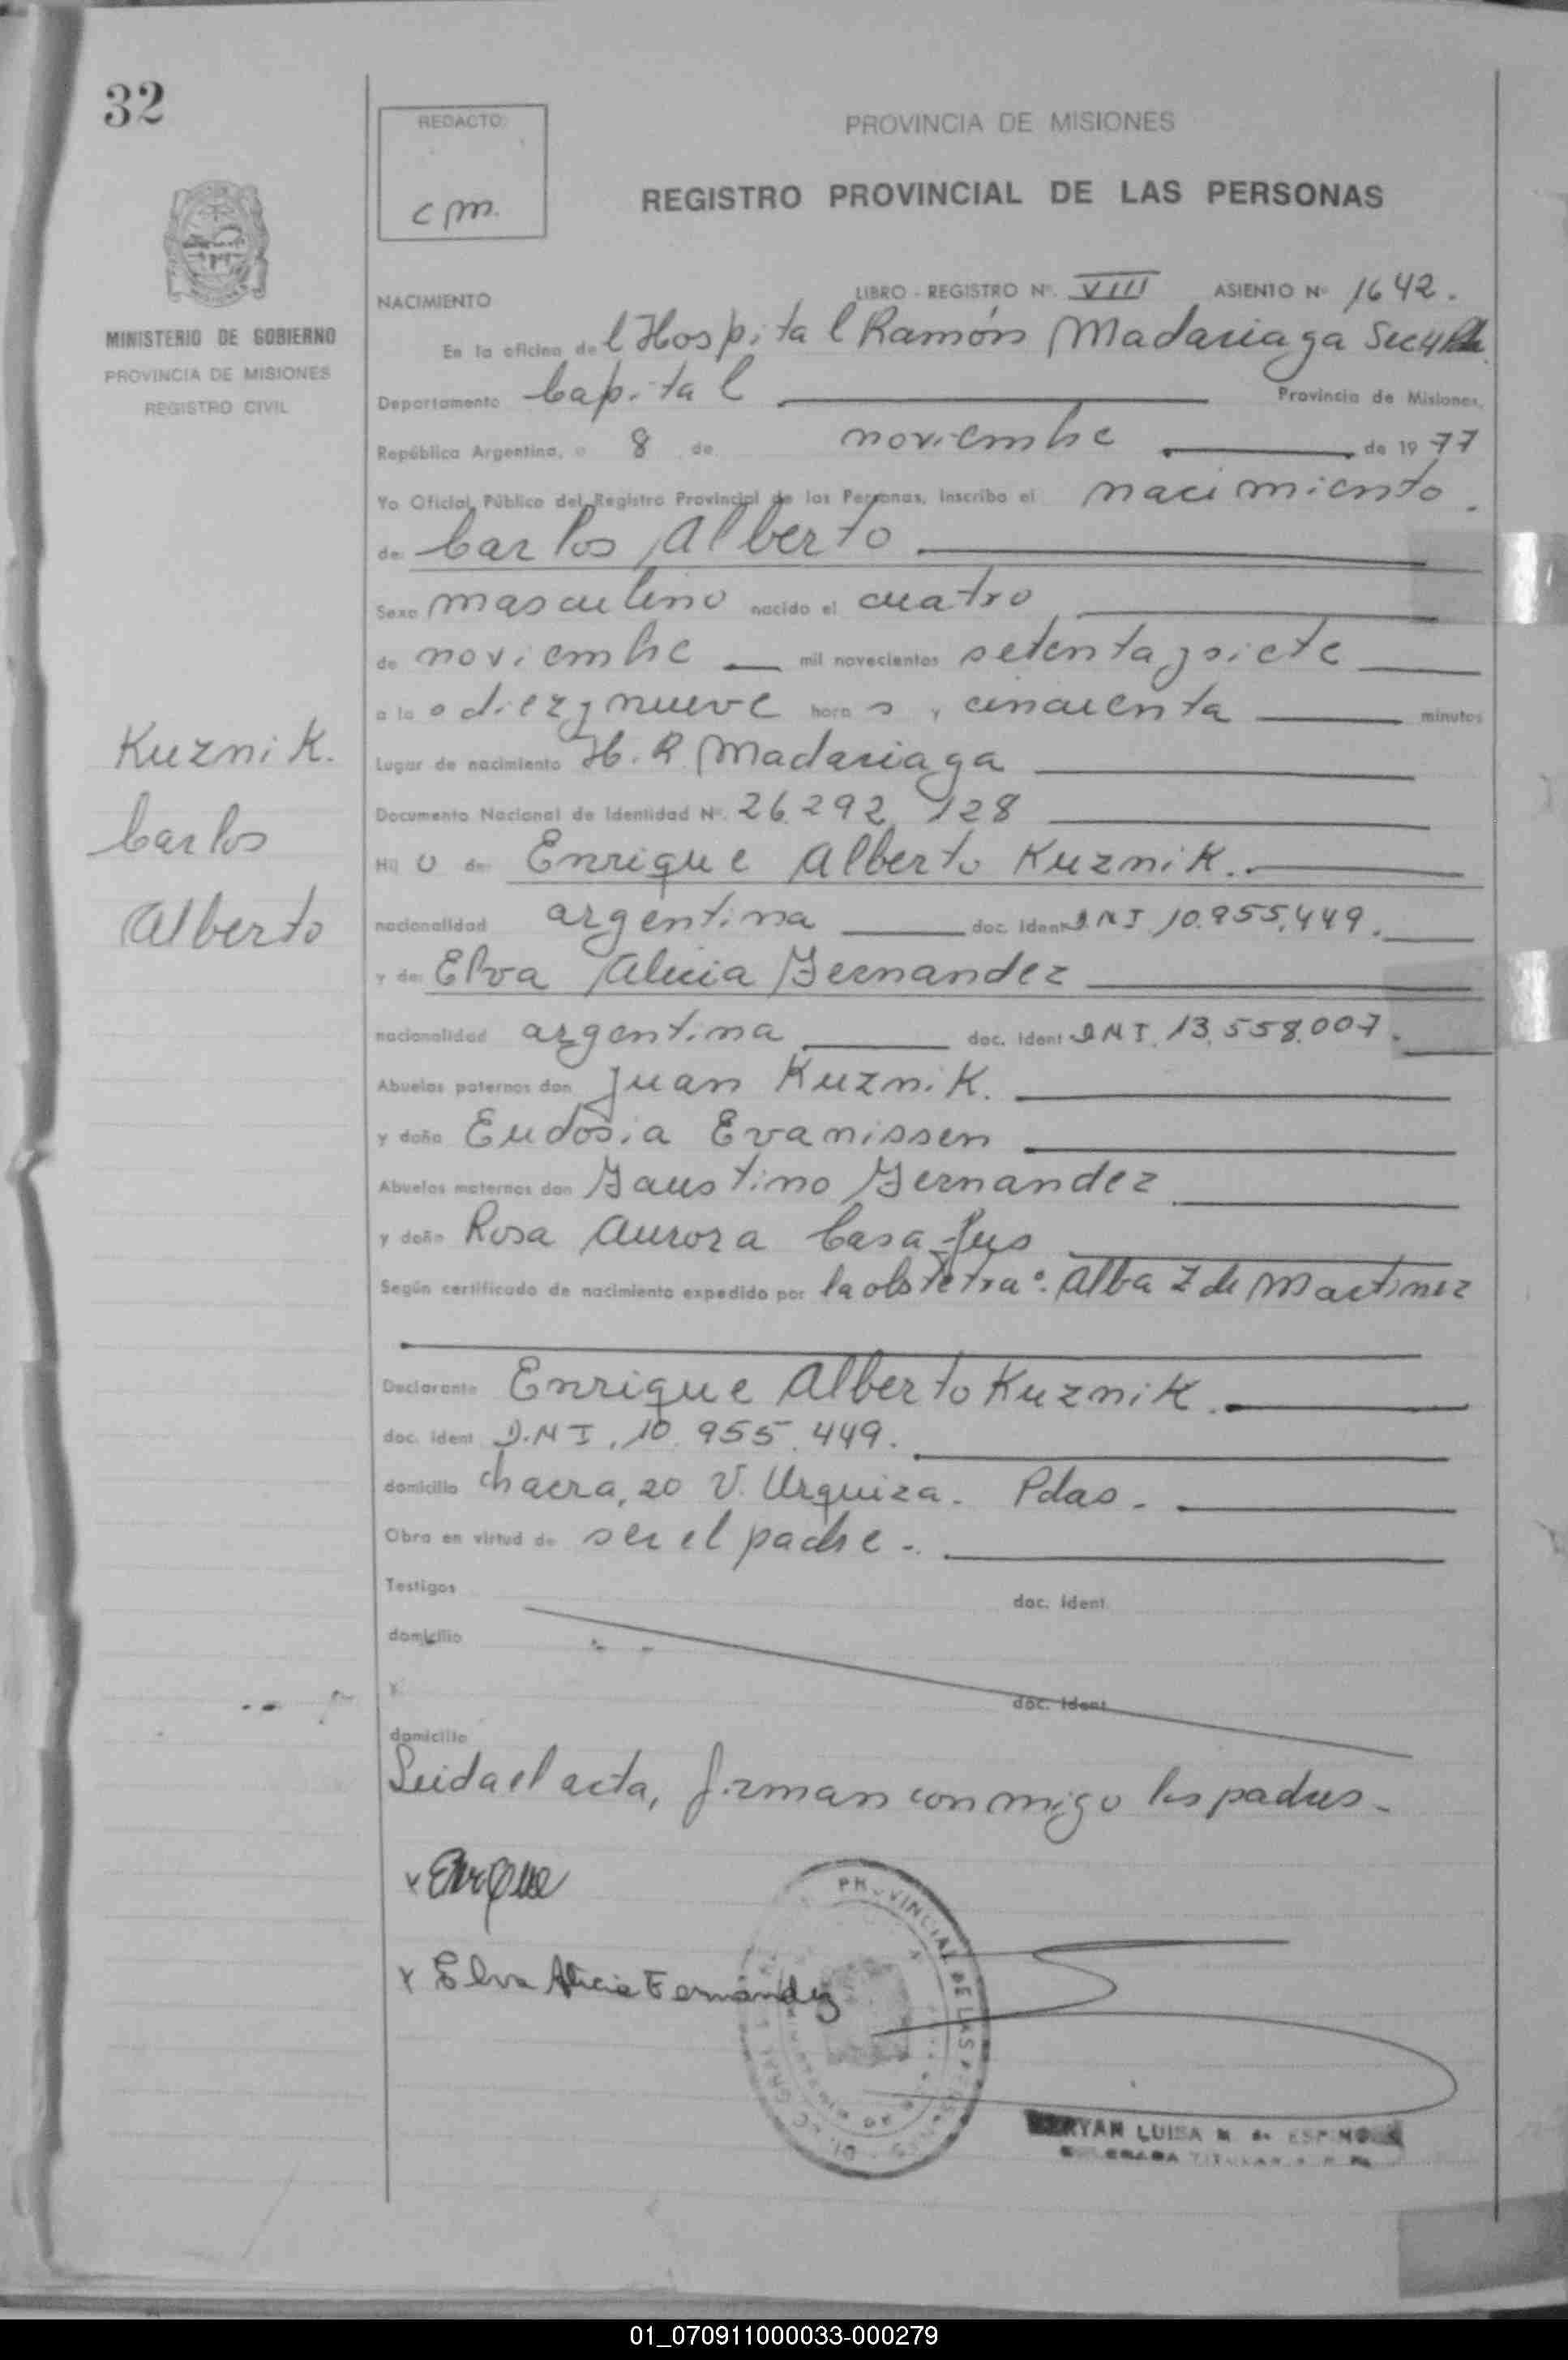 32
REDACTO:
cm.
PROVINCIA DE MISIONES
REGISTRO PROVINCIAL DE LAS PERSONAS
MINISTERIO DE GOBIERNO
PROVINCIA DE MISIONES
REGISTRO CIVIL
NACIMIENTO
LIBRO - REGISTRO Nº. VIII ASIENTO Nº 1642.
En la oficina del Hospital Ramón Madariaga
Departamento Capital Provincia de Misiones,
República Argentina, a 8 de noviembre de 1977
Yo Oficial Público del Registro Provincial de las Personas, inscribo el nacimiento.
de: Carlos Alberto
Sexo masculino nacido el cuatro
de noviembre mil novecientos setenta y siete
a las diez y nueve horas y cincuenta minutos
Lugar de nacimiento H. R. Madariaga
Documento Nacional de Identidad Nº. 26.292.128
Hijo de: Enrique Alberto Kuznik.
nacionalidad argentina doc. ident D.N.I. 10.955.449.
y de: Elva Alicia Fernandez
nacionalidad argentina doc. ident D.N.I. 13.558.007.
Abuelos paternos don Juan Kuznik.
y doña Eudosia Evanissen
Abuelos maternos don Faustino Fernandez
y doña Rosa Aurora Casafus
Según certificado de nacimiento expedido por la obstetra. Alba Z de Martinez
Declarante Enrique Alberto Kuznik.
doc. ident D.N.I. 10.955.449.
domicilio chacra, 20 V. Urquiza. Pdas.
Obra en virtud de ser el padre.
Testigos doc. ident.
domicilio
y doc. ident
domicilio
Leida el acta, firman conmigo los padres.
x Enrique
x Elva Alicia Fernandez
Kuznik.
Carlos
Alberto
PROVINCIAL DE LAS PERSONAS
LUISA M. de ESPINOLA
01_070911000033-000279